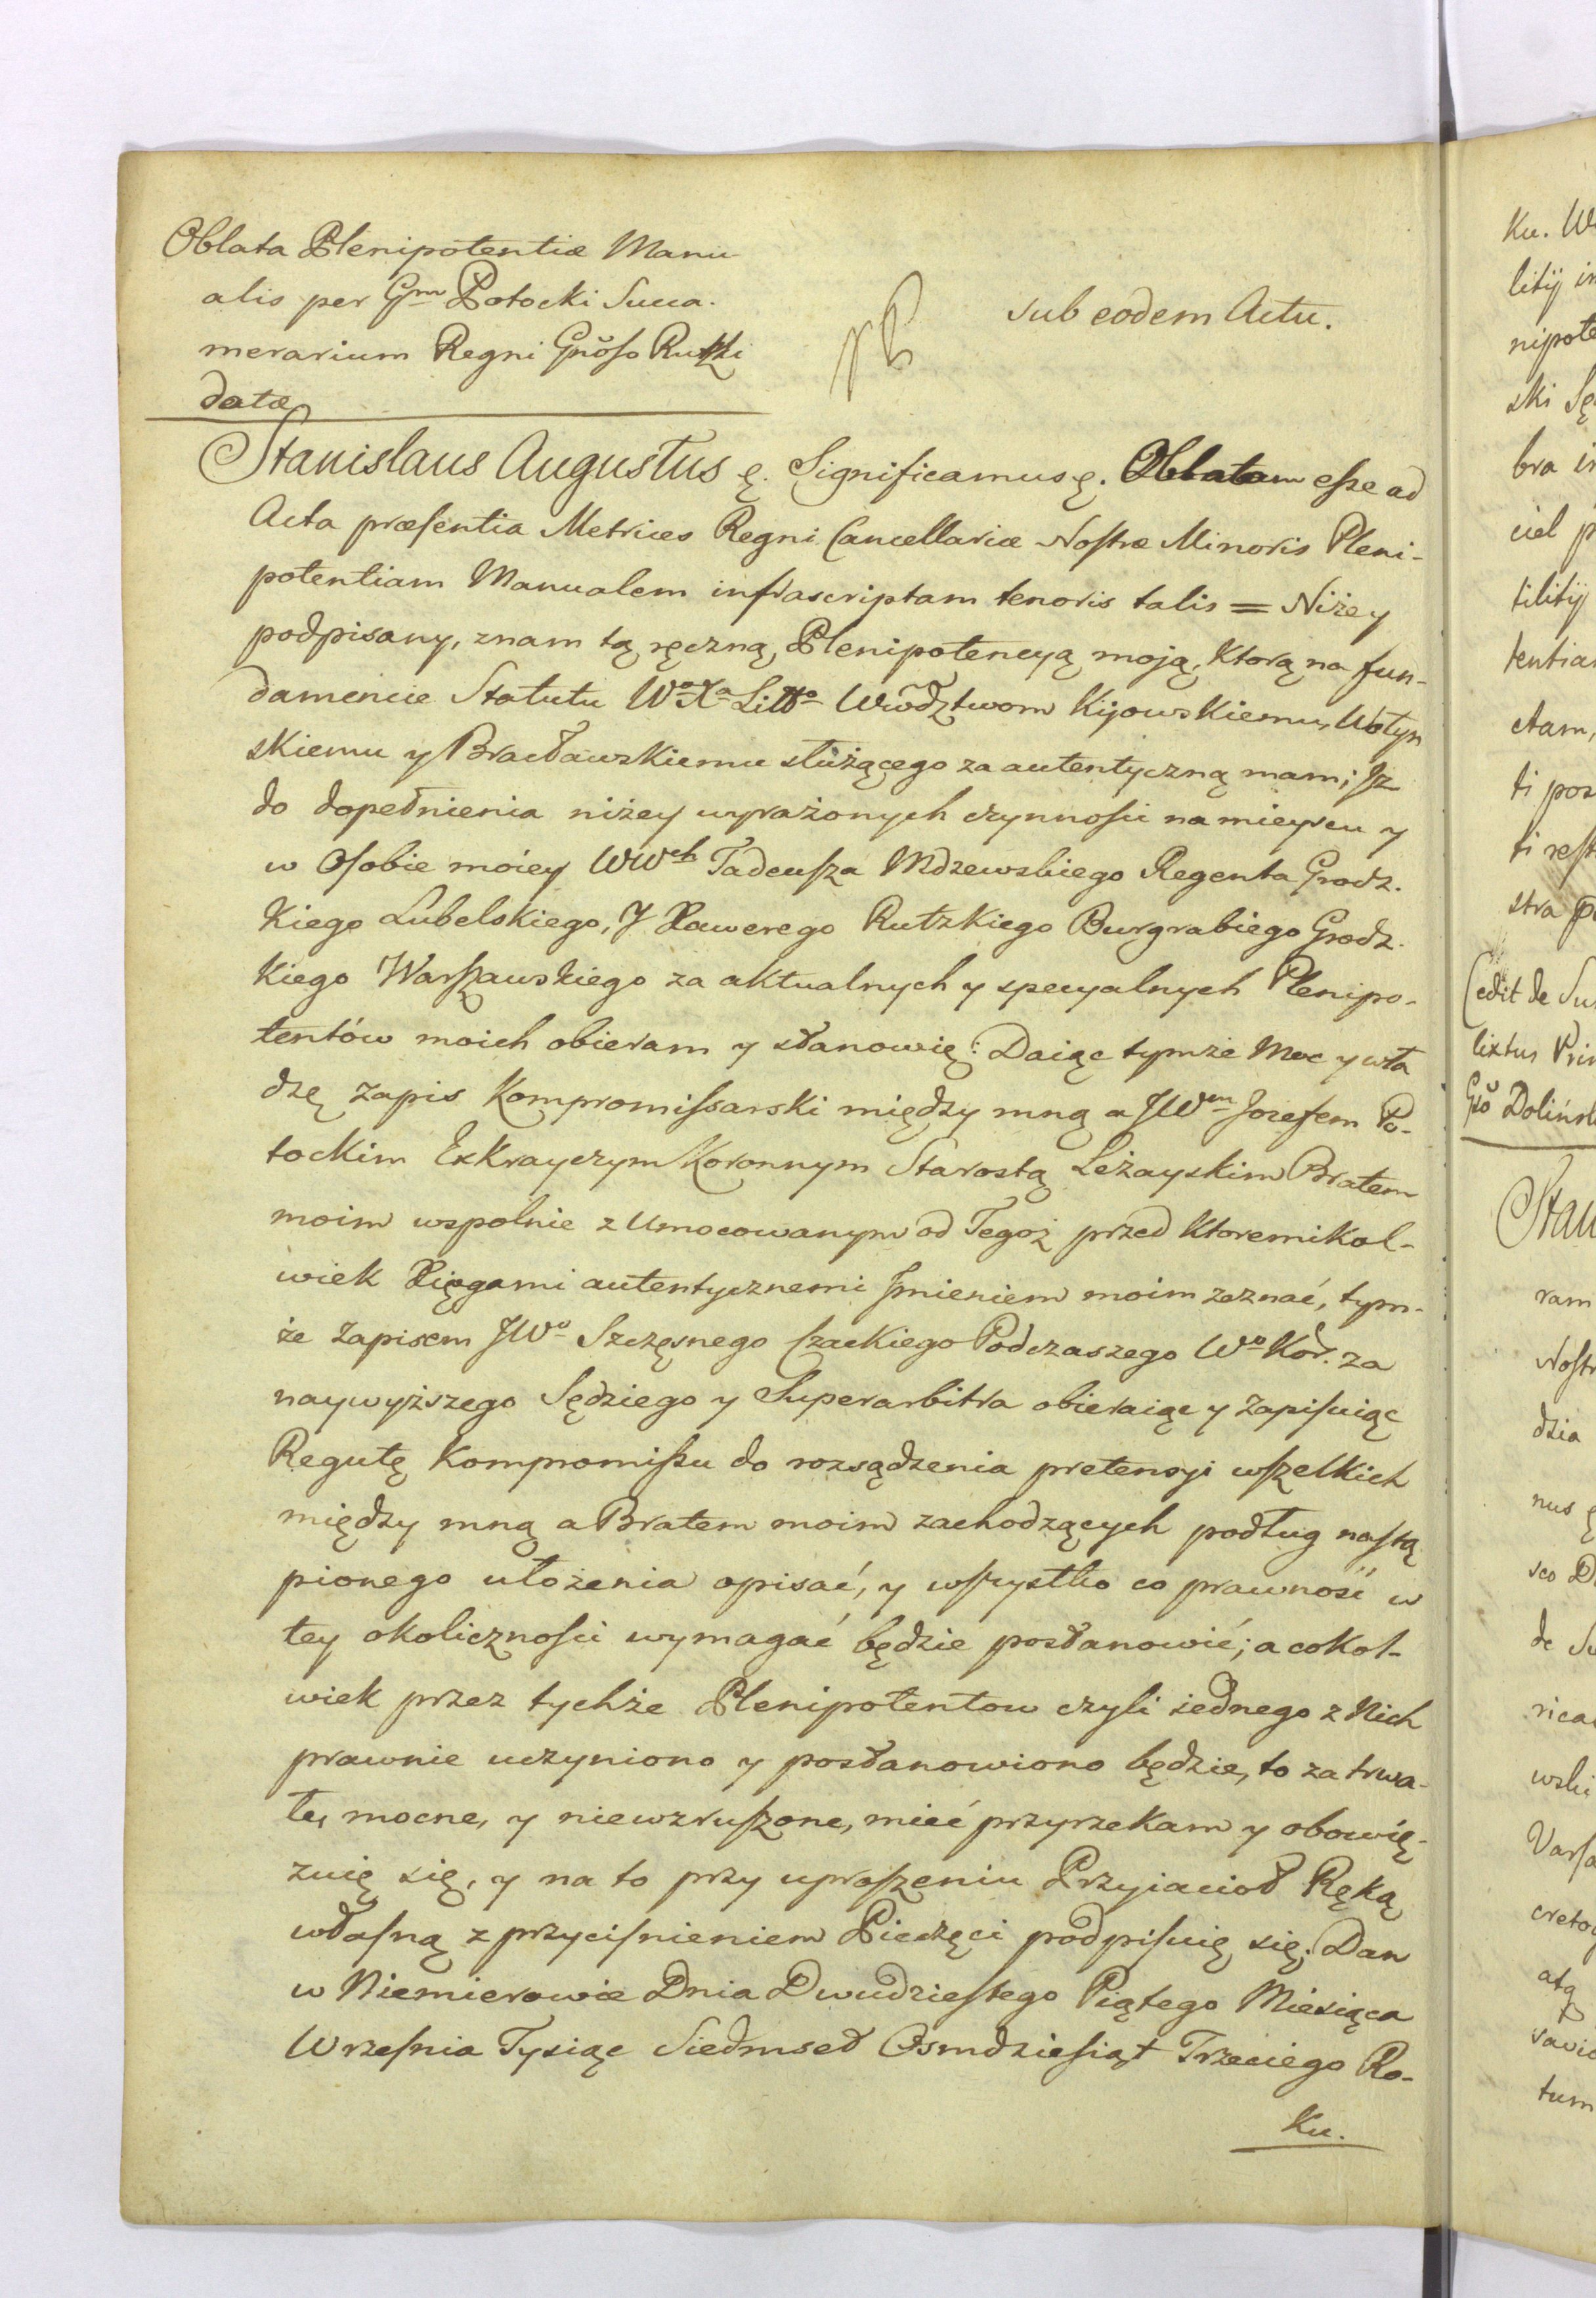 Oblata Plenipotentiæ Manu-
alis per Gm Potocki Succa.
merarium Regni Gnõso Rutzki
datæ
sub eodem Actu.
Stanislaus Augustus ę. Significamus ę. Oblatam esse ad
Acta præsentia Metrices Regni Cancellariæ Nostræ Minoris Pleni-
potentiam Manualem infrascriptam tenoris talis = Niżey
podpisany, znam tą ręczną Plenipotencyą moją, Ktorą na fun-
damencie Statutu Wo Xa Litto Wwõdztwom Kijowskiemu, Wołyn
skiemu y Bracławskiemu służącego za autentyczną mam; Jż
do dopełnienia niżey wyrażonych czynności na mieyscu y
w Osobie moiey WWch Tadeusza Mdzewskiego Regenta Grodz.
Kiego Lubelskiego, J Xawerego Rutzkiego Burgrabiego Grodz.
Kiego Warszawskiego za aktualnych y specyalnych Plenipo-
tentów moich obieram y stanowię: Daiąc tymże Moc y wła
dzę zapis Kompromissarski między mną a JWm Jozefem Po-
tockim ExKrayczym Koronnym Starostą Leżayskim Bratem
moim wspolnie z Umocowanym od Tegoż przed Ktoremikol-
wiek Xięgami autentycznemi Jmieniem moim zeznać, tym-
że Zapisem JWo Szczęsnego Czackiego Podczaszego Wo Kor. za
naywyższego Sędziego y Superarbitra obieraiąc y Zapisuiąc
Regułę Kompromissu do rozsądzenia pretensyi wszelkich
między mną a Bratem moim zachodzących podług nastą
pionego ułożenia opisać, y wszystko co prawność w
tey okoliczności wymagać będzie postanowić; a cokol-
wiek przez tychże Plenipotentow czyli iednego z Nich
prawnie uczyniono y postanowiono będzie, to za trwa-
łe, mocne, y niewzruszone, mieć przyrzekam y obowię-
zuię się, y na to przy uproszeniu Przyiacioł Ręką
własną z przyciśnieniem Pieczęci podpisuię się; Dan
w Niemierowie Dnia Dwudziestego Piątego Miesiąca
Wrzesnia Tysiąc Siedmset Osmdziesiąt Trzeciego Ro-
Ku.